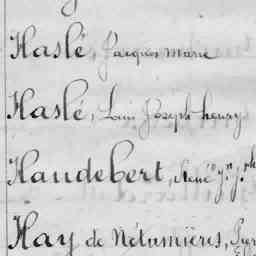 Haslé, Jacques Marie
Haslé, Louis Joseph henry
Haudebert, René Jn. Jph
Hay de Nétumières,